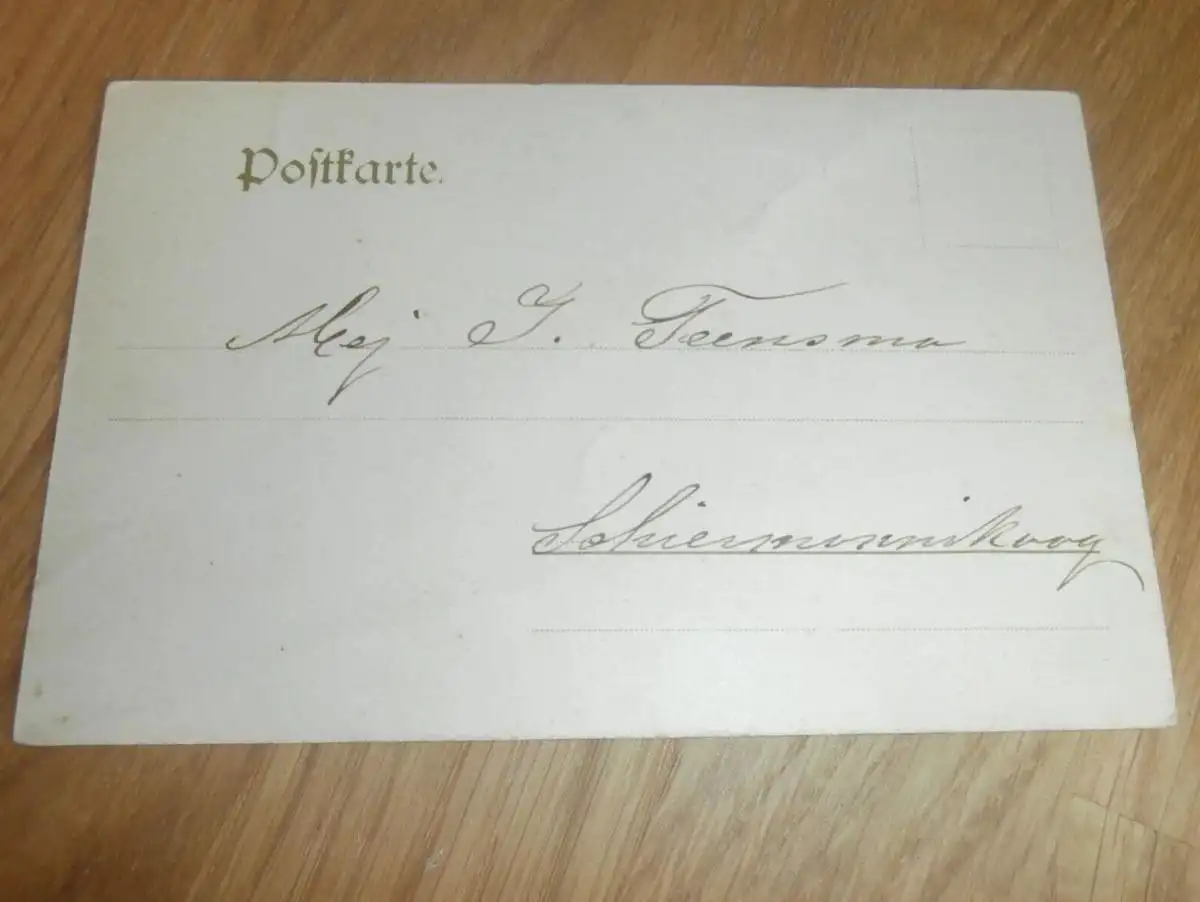 Postkarte.
Mej J. Teensma
Schiermonnikoog